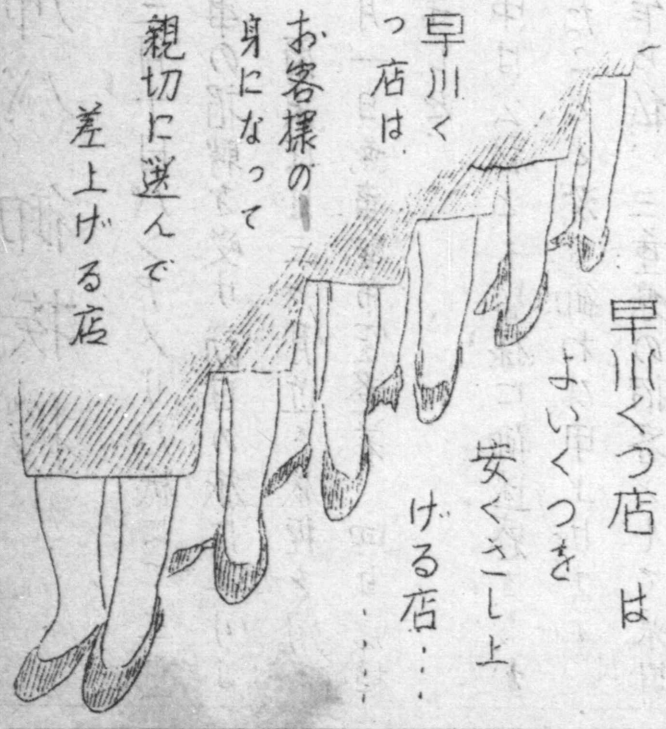 早川くつ店は
よいくつを
安くさし上
げる店……
早川く
つ店は
お客様の
身になって
親切に選んで
差上げる店